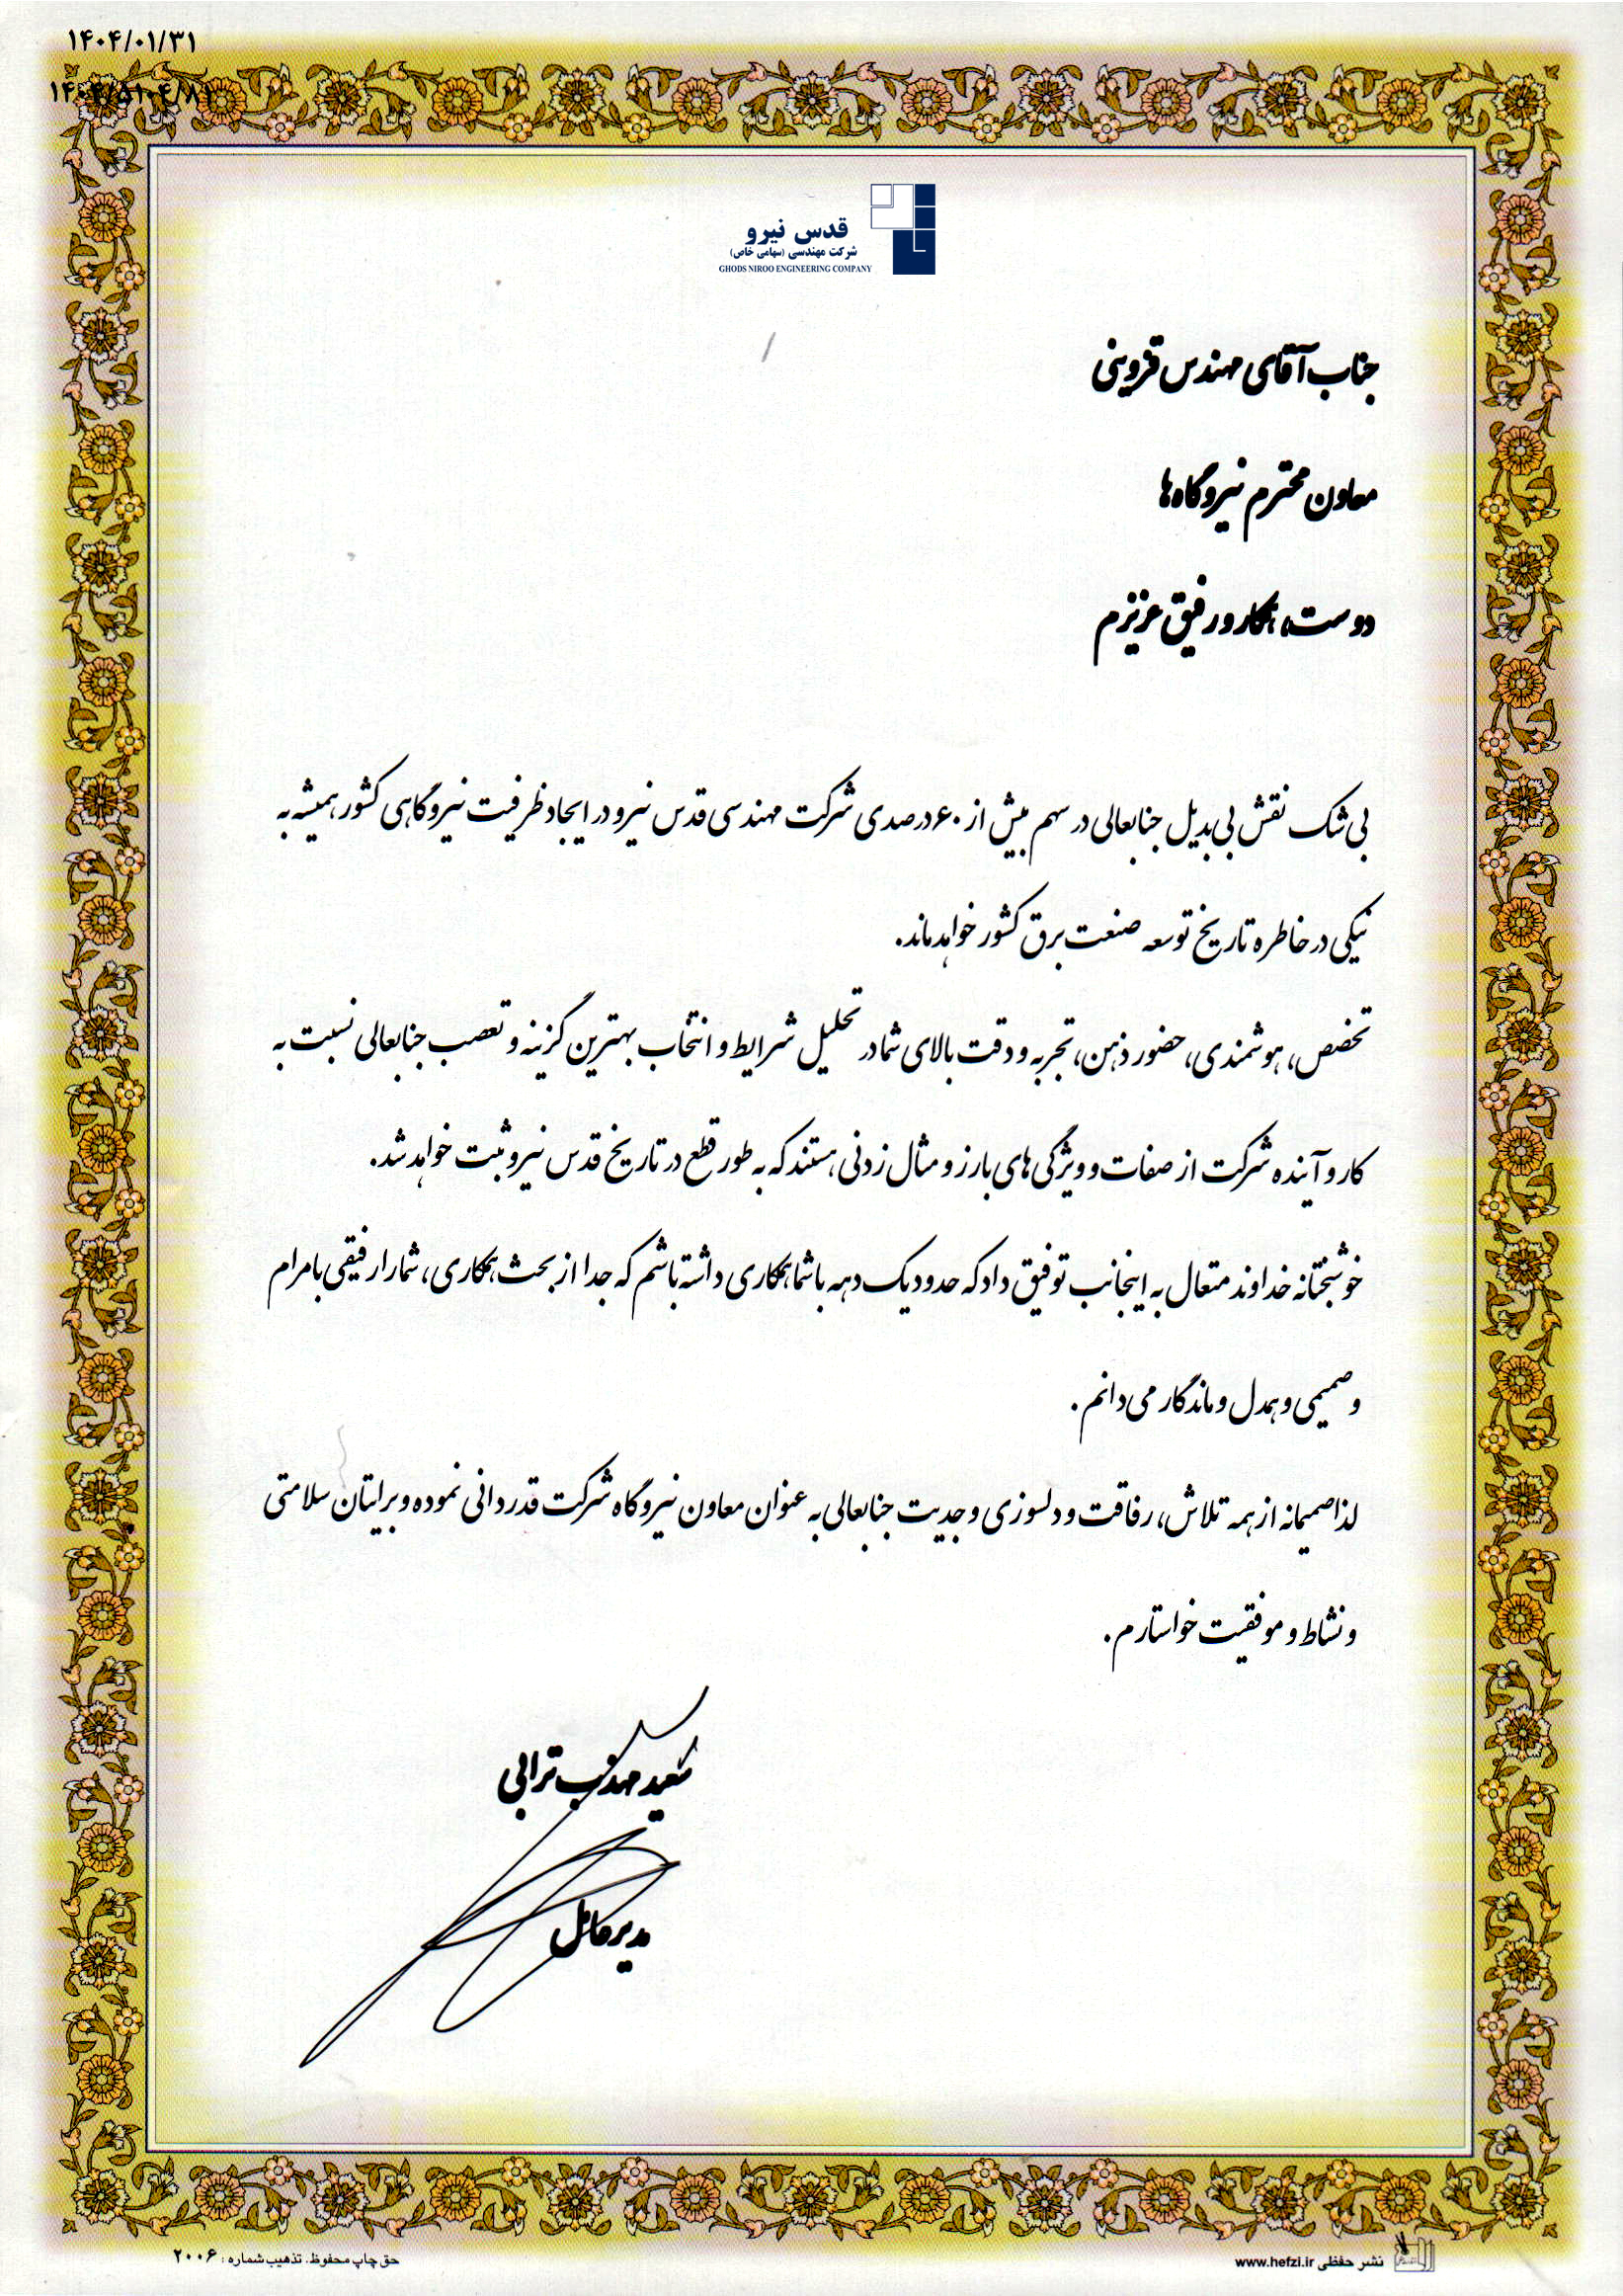 ۱۴۰۴/۰۱/۳۱
۱۴۰۴/۵۱۰۴/۸۱
قدس نیرو
شرکت مهندسی (سهامی خاص)
GHODS NIROO ENGINEERING COMPANY
جناب آقای مهندس قزوینی
معاون محترم نیروگاه‌ها
دوست، همکار و رفیق عزیزم
بی شک نقش بی بدیل جنابعالی در سهم بیش از ۶۰ درصدی شرکت مهندسی قدس نیرو در ایجاد ظرفیت نیروگاهی کشور همیشه به
نیکی در خاطره تاریخ توسعه صنعت برق کشور خواهد ماند.
تخصص، هوشمندی، حضور ذهن، تجربه و دقت بالای شما در تحلیل شرایط و انتخاب بهترین گزینه و تعصب جنابعالی نسبت به
کار و آینده شرکت از صفات و ویژگی های بارز و مثال زدنی هستند که به طور قطع در تاریخ قدس نیرو ثبت خواهد شد.
خوشبختانه خداوند متعال به اینجانب توفیق داد که حدود یک دهه با شما همکاری داشته باشم که جدا از بحث همکاری، شما را رفیقی با مرام
و صمیمی و همدل و ماندگار می دانم.
لذا صمیمانه از همه تلاش، رفاقت و دلسوزی و جدیت جنابعالی به عنوان معاون نیروگاه شرکت قدردانی نموده و برایتان سلامتی
و نشاط و موفقیت خواستارم.
سعید مهذب ترابی
مدیرعامل
نشر حفظی www.hefzi.ir
حق چاپ محفوظ. تذهیب شماره : ۲۰۰۶